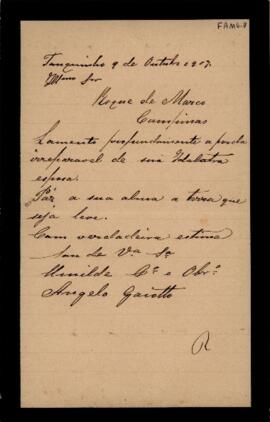 FAMG-8
Tanquinho 9 de Outubro 1907.
Illmo Snr
Roque de Marco
Campinas
Lamento profundamente a perda
irreparavel de sua Idolatra
esposa.
Paz a sua alma a terra que
seja leve.
Com verdadeira estima
Sou de V.ª S.ª
Umilde C.º e Obr.º
Angelo Gaiotto
R